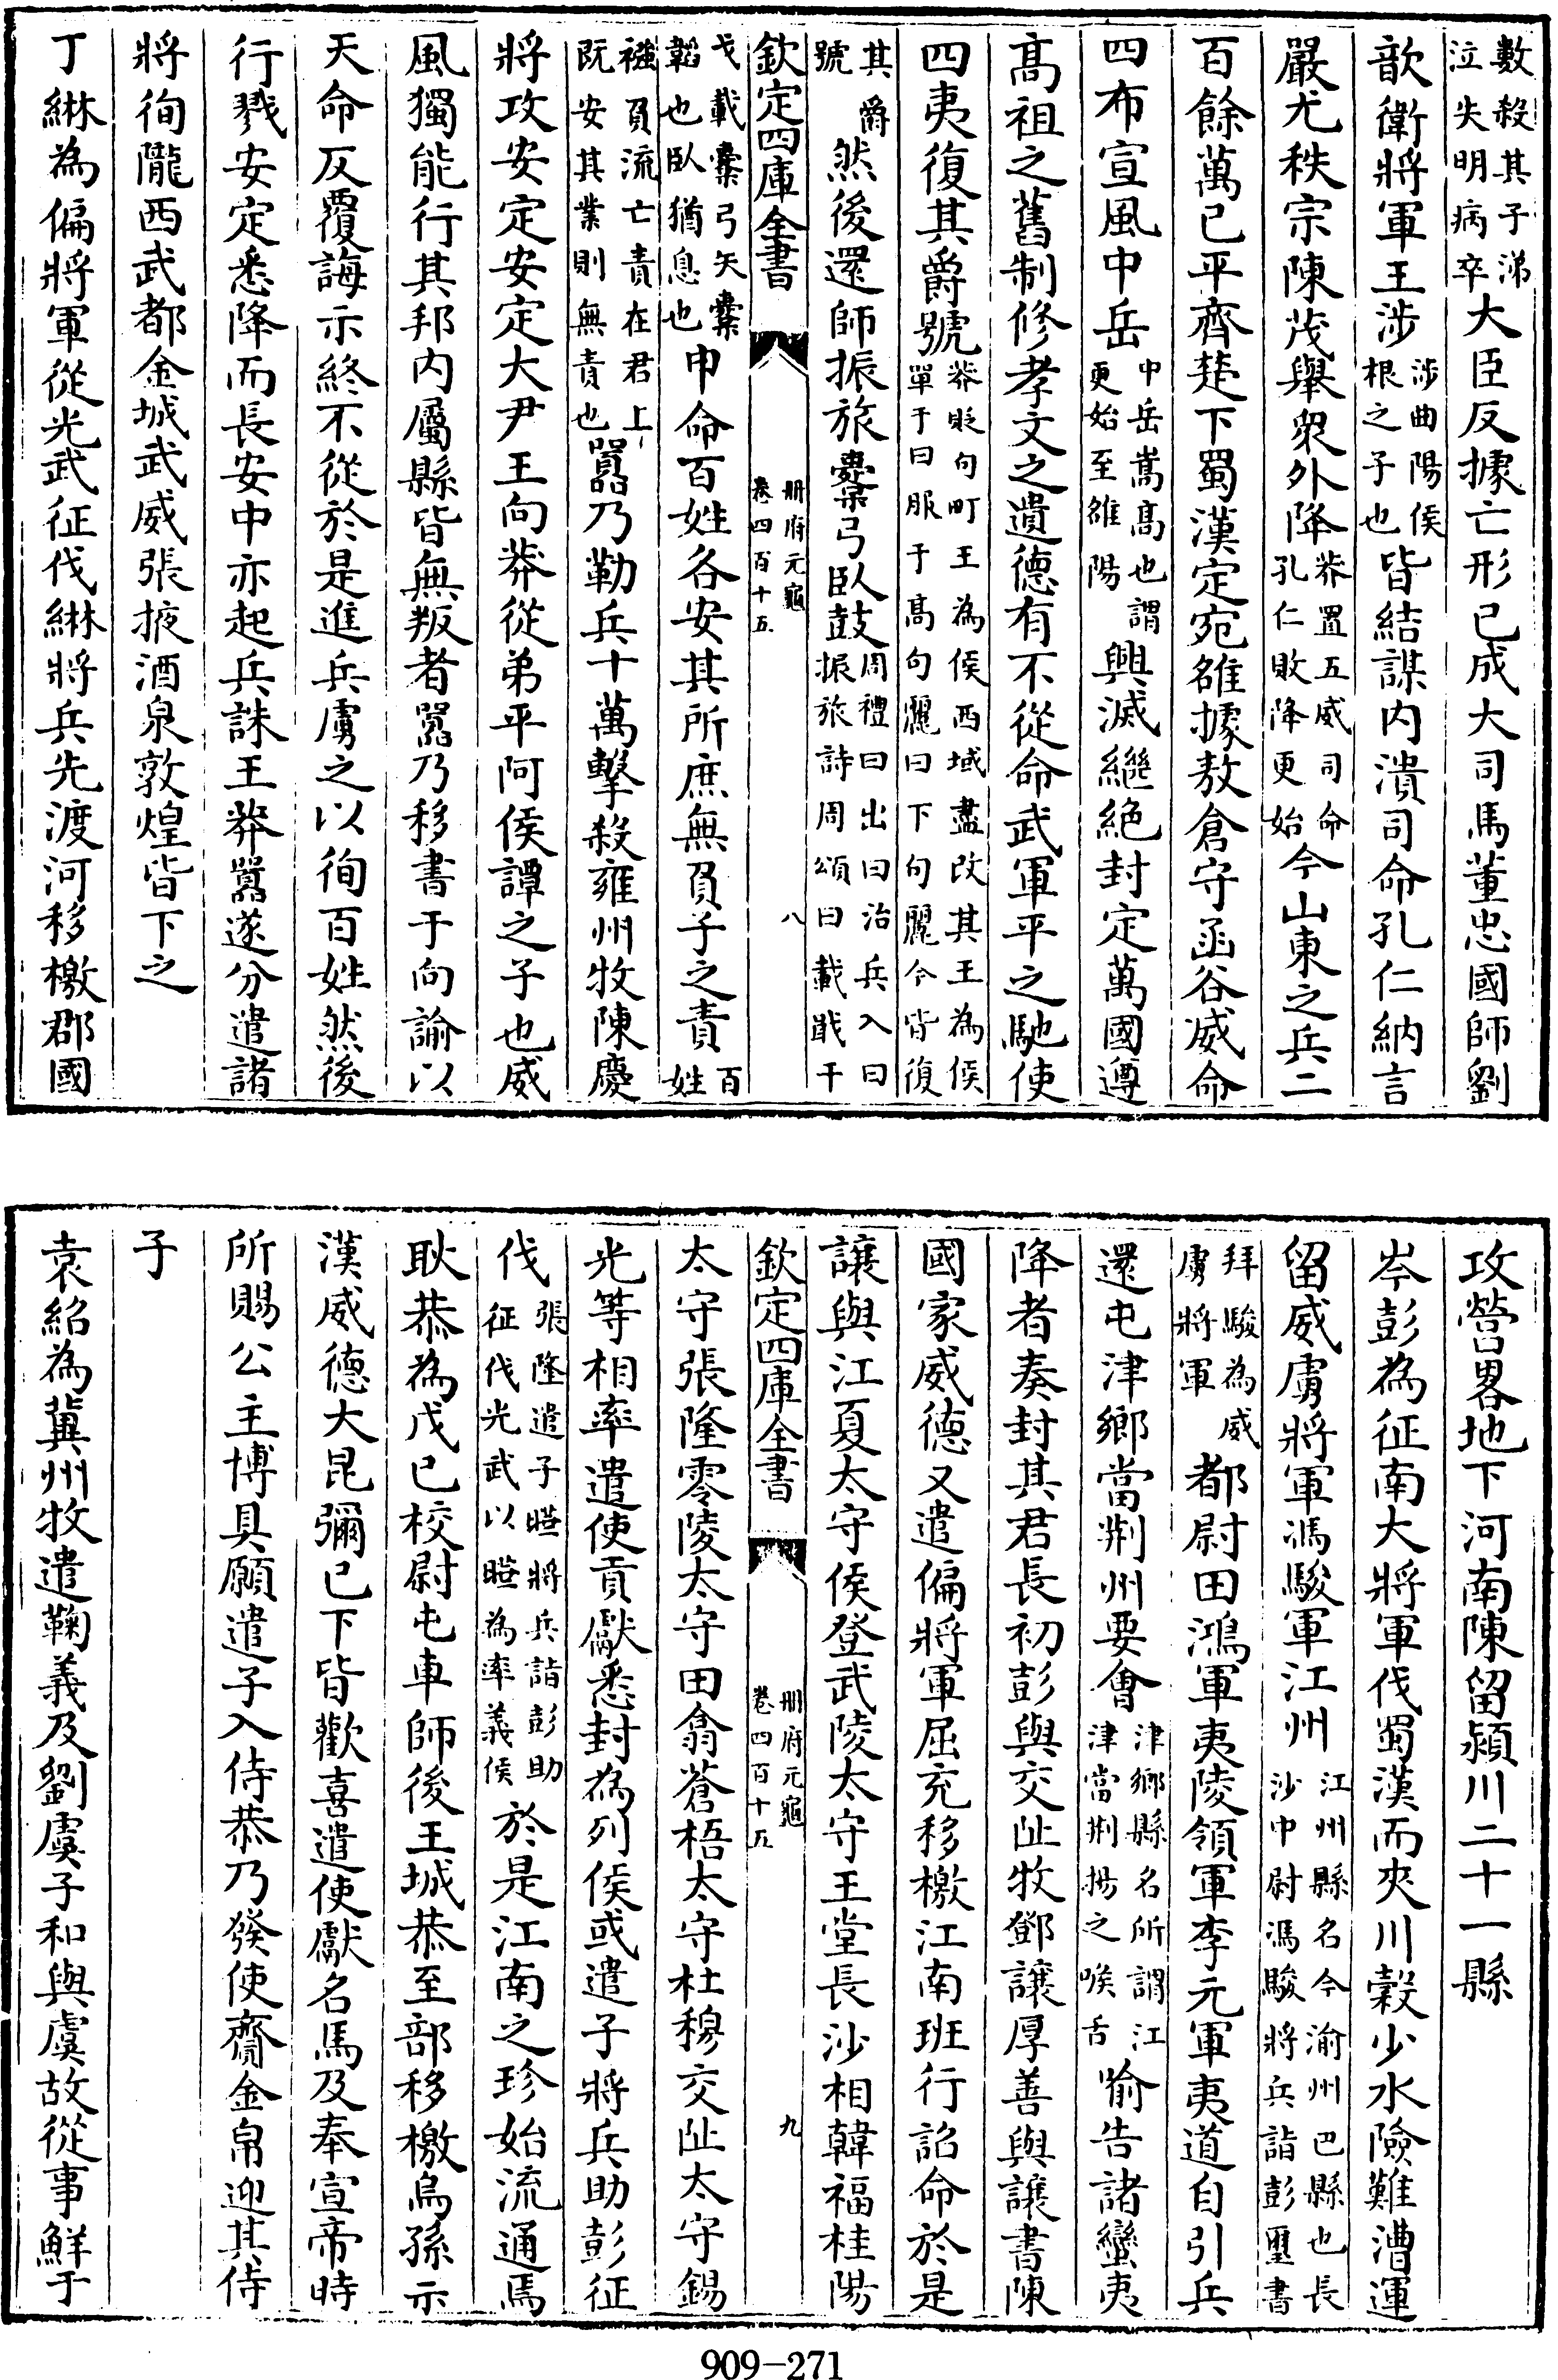 數殺其子涕泣失明病卒大臣反據亡形已成大司馬董忠國師劉
歆衛將軍王涉涉曲陽侯根之子也皆結謀内潰司命孔仁納言
嚴尤秩宗陳茂舉衆外降莽置五威司命孔仁敗降更始今山東之兵二
百餘萬已平齊楚下蜀漢定宛雒據敖倉守函谷威命
四布宣風中岳中岳嵩高也謂更始至雒陽興滅繼絶封定萬國遵
髙祖之舊制修孝文之遺德有不從命武軍平之馳使
四夷復其爵號莽貶句町王為侯西域盡改其王為侯單于曰服于高句驪曰下句麗今皆復
其爵號然後還師振旅櫜弓臥鼓周禮曰出曰治兵入曰振旅詩周頌曰載戢干
欽定四庫全書
册府元龜
卷四百十五
八
戈載櫜弓矢櫜韜也臥猶息也申命百姓各安其所庶無負子之責百姓
襁負流亡責在君上既安其業則無責也囂乃勒兵十萬擊殺雍州牧陳慶
將攻安定安定大尹王向莽從弟平阿侯譚之子也威
風獨能行其邦内屬縣皆無叛者囂乃移書于向諭以
天命反覆誨示終不從於是進兵虜之以徇百姓然後
行戮安定悉降而長安中亦起兵誅王莽囂遂分遣諸
將徇隴西武都金城武威張掖酒泉敦煌皆下之
丁綝為偏將軍從光武征伐綝將兵先渡河移檄郡國
攻營畧地下河南陳留潁川二十一縣
岑彭為征南大將軍伐蜀漢而夾川穀少水險難漕運
留威虜將軍馮駿軍江州江州縣名今渝州巴縣也長沙中尉馮駿將兵詣彭璽書
拜駿為威虜將軍都尉田鴻軍夷陵領軍李元軍夷道自引兵
還屯津鄉當荆州要會津鄉縣名所謂江津當荆揚之喉舌喻告諸蠻夷
降者奏封其君長初彭與交阯牧鄧讓厚善與讓書陳
國家威德又遣偏將軍屈充移檄江南班行詔命於是
讓與江夏太守侯登武陵太守王堂長沙相韓福桂陽
欽定四庫全書
册府元龜
卷四百十五
九
太守張隆零陵太守田翕蒼梧太守杜穆交阯太守錫
光等相率遣使貢獻悉封為列侯或遣子將兵助彭征
伐張隆遣子曄將兵詣彭助征伐光武以曄為率義侯於是江南之珍始流通焉
耿恭為戊巳校尉屯車師後王城恭至部移檄烏孫示
漢威德大昆彌已下皆歡喜遣使獻名馬及奉宣帝時
所賜公主博具願遣子入侍恭乃發使齎金帛迎其侍
子
袁紹為冀州牧遣鞠義及劉虞子和與虞故從事鮮于
909-271